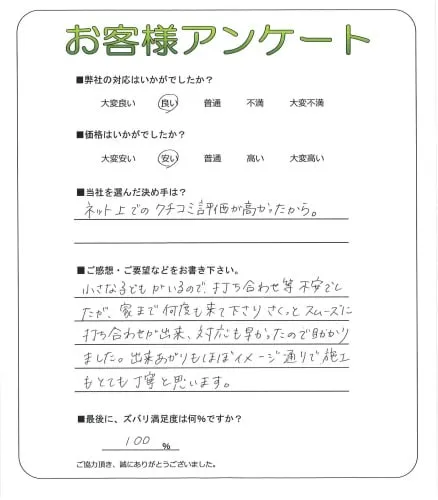 お客様アンケート
■弊社の対応はいかがでしたか？
大変良い 良い 普通 不満 大変不満
■価格はいかがでしたか？
大変安い 安い 普通 高い 大変高い
■当社を選んだ決め手は？
ネット上での クチコミ評価が高かったから。
■ご感想・ご要望などをお書き下さい。
小さな子どもがいるので、打ち合わせ等 不安でし
たが、家まで何度も来て下さり さくっと スムーズに
打ち合わせが出来、対応も早かったので助かり
ました。出来あがりもほぼイメージ通りで施工
もとても丁寧と思います。
■最後に、ズバリ満足度は何％ですか？
100 %
ご協力頂き、誠にありがとうございました。